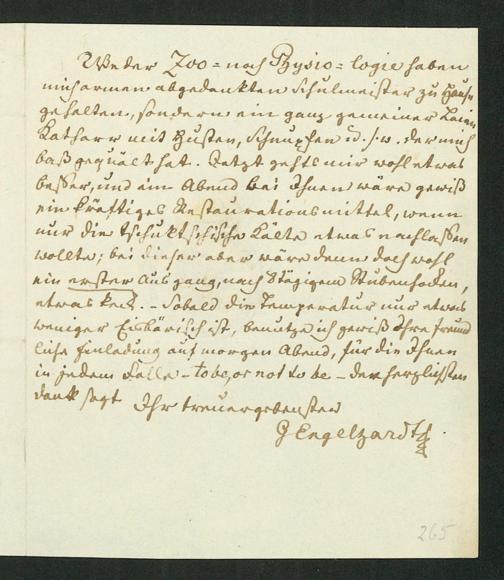 Weder Zoo- noch Physio-logie haben
mich armen abgedankten Schulmeister zu Hause
gehalten, sondern ein ganz gemeiner Laien-
Katharr mit Husten, Schnupfen u.s.w. der mich
baß gequält hat. Jetzt gehts mir wohl etwas
besser, und ein Abend bei Ihnen wäre gewiß
ein kräftiges Restaurationsmittel, wenn
nur die tschuktschische Kälte etwas nachlassen
wollte; bei dieser aber wäre denn doch wohl
ein erster Ausgang, nach 8tägigem Stubenhocken,
etwas keck. – Sobald die Temperatur nur etwas
weniger Eisbärisch ist, benutze ich gewiß Ihre freund
liche Einladung auf morgen Abend, für die Ihnen
in jedem Falle – to be, or not to be – den herzlichsten
Dank sagt Ihr treuergebenster
GEngelhardt
265